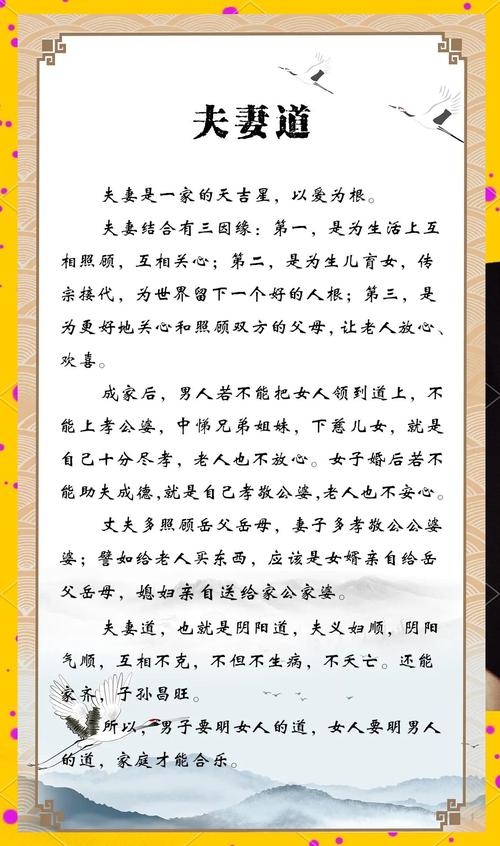 夫妻道
夫妻是一家的天吉星，以爱为根。
夫妻结合有三因缘：第一，是为生活上互
相照顾，互相关心；第二，是为生儿育女，传
宗接代，为世界留下一个好的人根；第三，是
为更好地关心和照顾双方的父母，让老人放心、
欢喜。
成家后，男人若不能把女人领到道上，不
能上孝公婆，中悌兄弟姐妹，下慈儿女，就是
自己十分尽孝，老人也不放心。女子婚后若不
能助夫成德，就是自己孝敬公婆，老人也不安心。
丈夫多照顾岳父岳母，妻子多孝敬公公婆
婆；譬如给老人买东西，应该是女婿亲自给岳
父岳母，媳妇亲自送给家公家婆。
夫妻道，也就是阴阳道，夫义妇顺，阴阳
气顺，互相不克，不但不生病，不夭亡。还能
家齐，子孙昌旺。
所以，男子要明女人的道，女人要明男人
的道，家庭才能合乐。